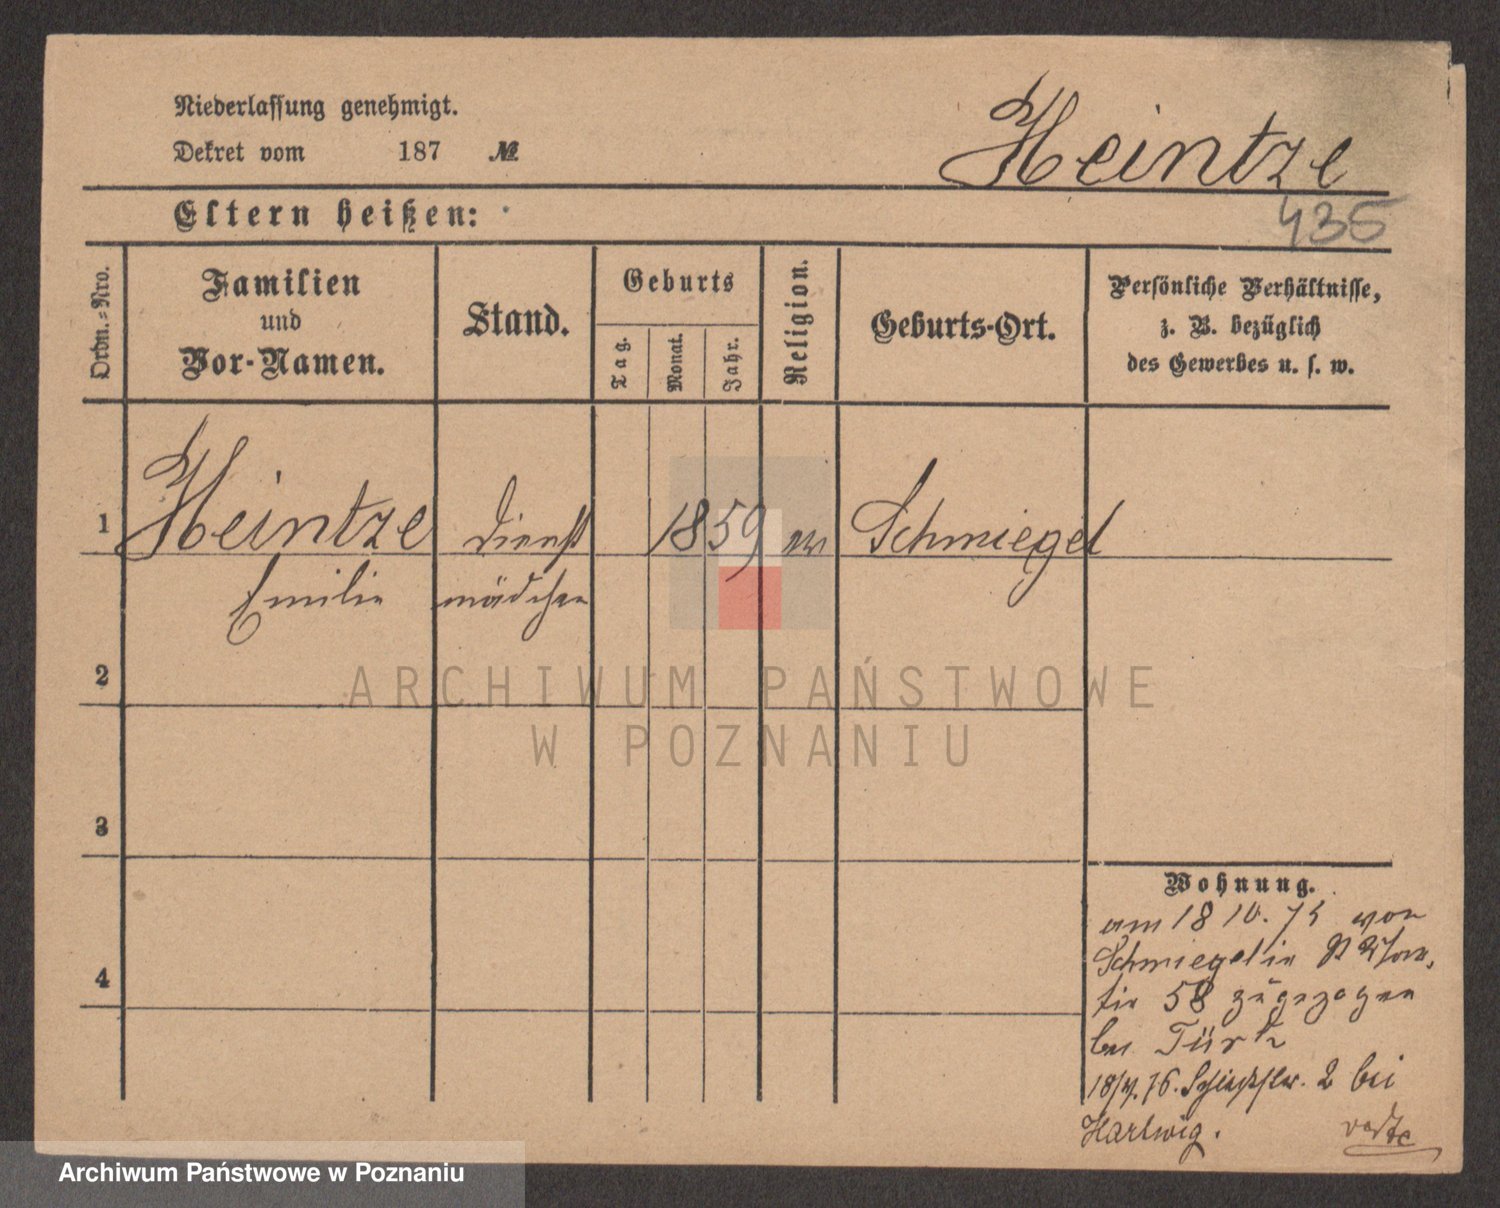 Niederlassung genehmigt.
Dekret vom 187 №
Heintze
435
Eltern heißen:
Ordn.-Nro.
Familien
und
Vor-Namen.
Stand.
Geburts
Tag.
Monat.
Jahr.
Religion.
Geburts-Ort.
Persönliche Verhältnisse,
z. B. bezüglich
des Gewerbes u. s. w.
1 Heintze Dienst 1859 ev Schmiegel
Emilie mädchen
2
3
4
Wohnung.
am 18 10. 75 von
Schmiegel in
58 zugezogen
bei Türk
18/4. 76. 2 bei
Hartwig.
verte
ARCHIWUM PAŃSTWOWE
W POZNANIU
Archiwum Państwowe w Poznaniu